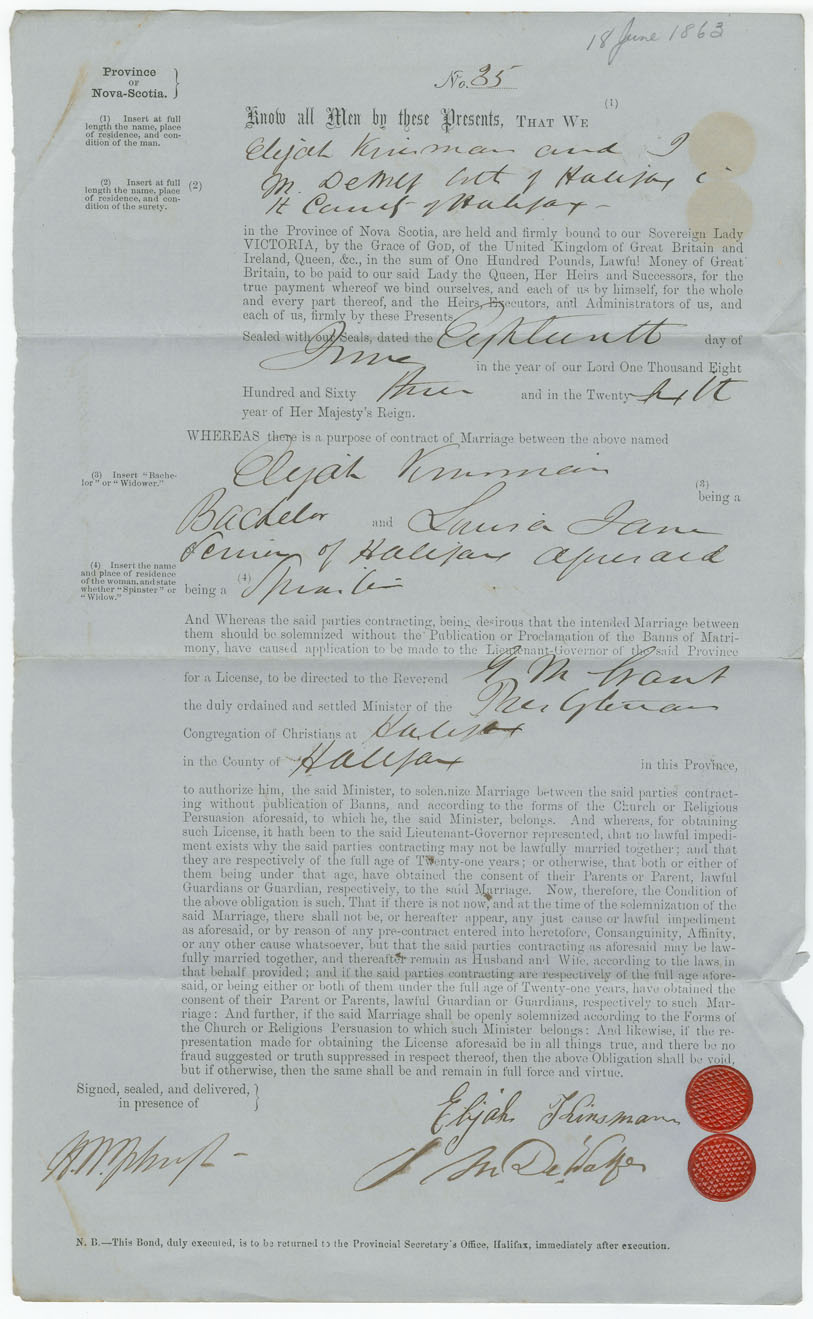 18 June 1863
Province
OF
Nova-Scotia.
No. 85
(1) Insert at full
length the name, place
of residence, and con-
dition of the man.
Know all Men by these Presents, THAT WE (1)
Elijah Kinsman and J
(2) Insert at full
length the name, place
of residence, and con-
dition of the surety.
(2) M. DeWolf both of Halifax in
County of Halifax
in the Province of Nova Scotia, are held and firmly bound to our Sovereign Lady
VICTORIA, by the Grace of GOD, of the United Kingdom of Great Britain and
Ireland, Queen, &c., in the sum of One Hundred Pounds, Lawful Money of Great
Britain, to be paid to our said Lady the Queen, Her Heirs and Successors, for the
true payment whereof we bind ourselves, and each of us by himself, for the whole
and every part thereof, and the Heirs, Executors, and Administrators of us, and
each of us, firmly by these Presents.
Sealed with our Seals, dated the Eighteenth day of
June in the year of our Lord One Thousand Eight
Hundred and Sixty three and in the Twenty sixth
year of Her Majesty's Reign.
WHEREAS there is a purpose of contract of Marriage between the above named
Elijah Kinsman
(3) Insert "Bache-
lor" or "Widower."
(3)
being a
Bachelor and Louisa Jane
of Halifax aforesaid
(4) Insert the name
and place of residence
of the woman, and state
whether "Spinster" or
"Widow."
being a (4) Spinster
And Whereas the said parties contracting, being desirous that the intended Marriage between
them should be solemnized without the Publication or Proclamation of the Banns of Matri-
mony, have caused application to be made to the Lieutenant-Governor of the said Province
for a License, to be directed to the Reverend G M Grant
the duly ordained and settled Minister of the Presbyterian
Congregation of Christians at Halifax
in the County of Halifax in this Province,
to authorize him, the said Minister, to solemnize Marriage between the said parties contract-
ing without publication of Banns, and according to the forms of the Church or Religious
Persuasion aforesaid, to which he, the said Minister, belongs. And whereas, for obtaining
such License, it hath been to the said Lieutenant-Governor represented, that no lawful impedi-
ment exists why the said parties contracting may not be lawfully married together; and that
they are respectively of the full age of Twenty-one years; or otherwise, that both or either of
them being under that age, have obtained the consent of their Parents or Parent, lawful
Guardians or Guardian, respectively, to the said Marriage. Now, therefore, the Condition of
the above obligation is such, That if there is not now, and at the time of the solemnization of the
said Marriage, there shall not be, or hereafter appear, any just cause or lawful impediment
as aforesaid, or by reason of any pre-contract entered into heretofore, Consanguinity, Affinity,
or any other cause whatsoever, but that the said parties contracting as aforesaid may be law-
fully married together, and thereafter remain as Husband and Wife, according to the laws in
that behalf provided; and if the said parties contracting are respectively of the full age afore-
said, or being either or both of them under the full age of Twenty-one years, have obtained the
consent of their Parent or Parents, lawful Guardian or Guardians, respectively to such Mar-
riage: And further, if the said Marriage shall be openly solemnized according to the Forms of
the Church or Religious Persuasion to which such Minister belongs: And likewise, if the re-
presentation made for obtaining the License aforesaid be in all things true, and there be no
fraud suggested or truth suppressed in respect thereof, then the above Obligation shall be void,
but if otherwise, then the same shall be and remain in full force and virtue.
Signed, sealed, and delivered,
in presence of
Elijah Kinsman
J M DeWolfe
N. B.—This Bond, duly executed, is to be returned to the Provincial Secretary's Office, Halifax, immediately after execution.